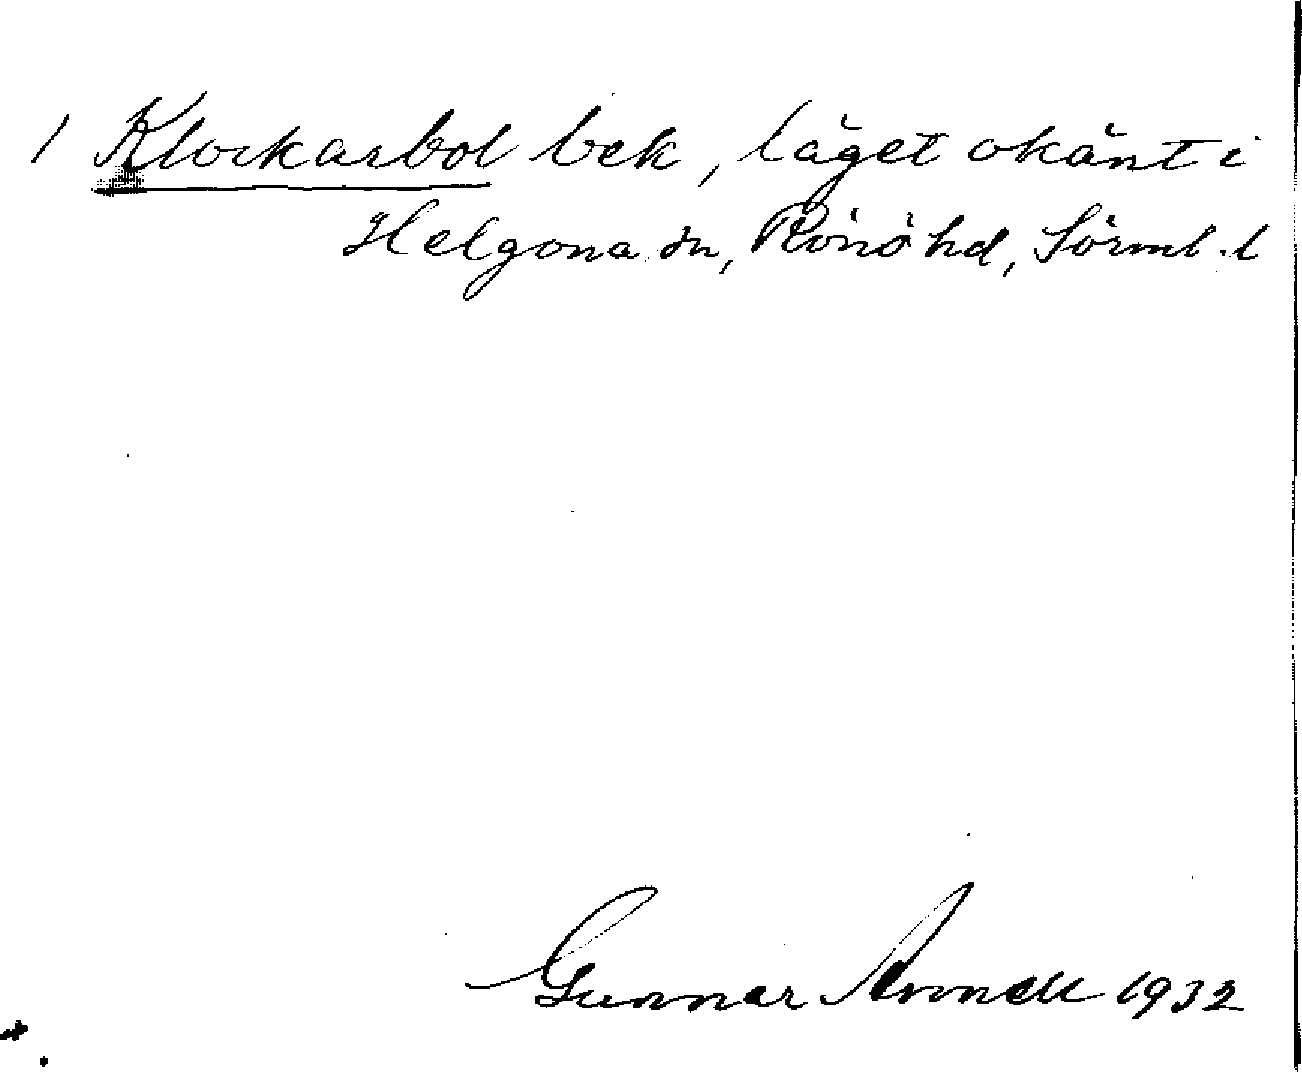 1 Klockarbol bek, läget okänt i
Helgona sn, Rönö hd, Sörml. l
Gunnar 1932